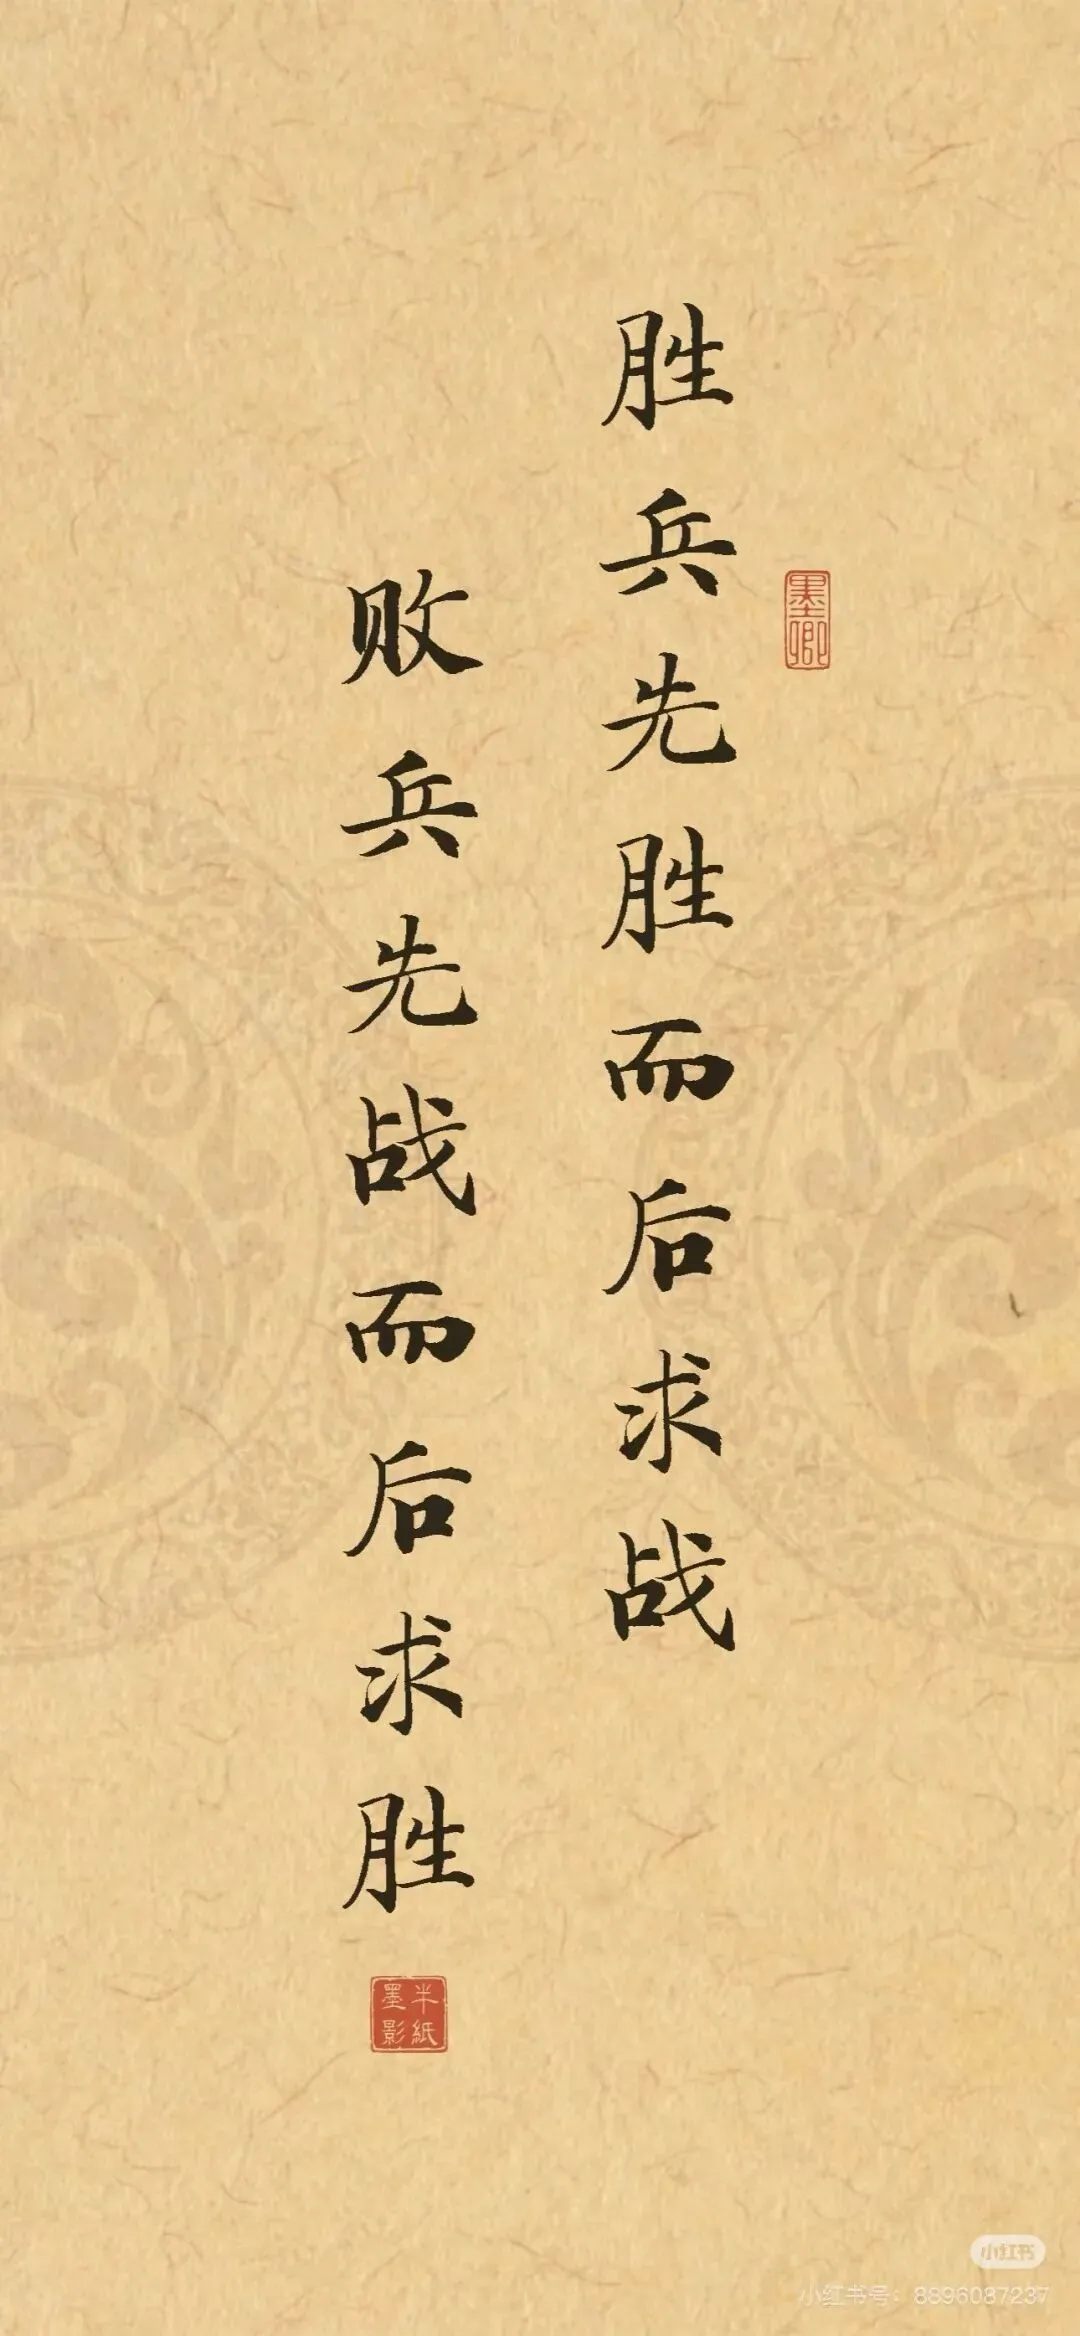 胜兵先胜而后求战
墨卿
败兵先战而后求胜
半紙
墨影
小红书
小红书号：8896087237